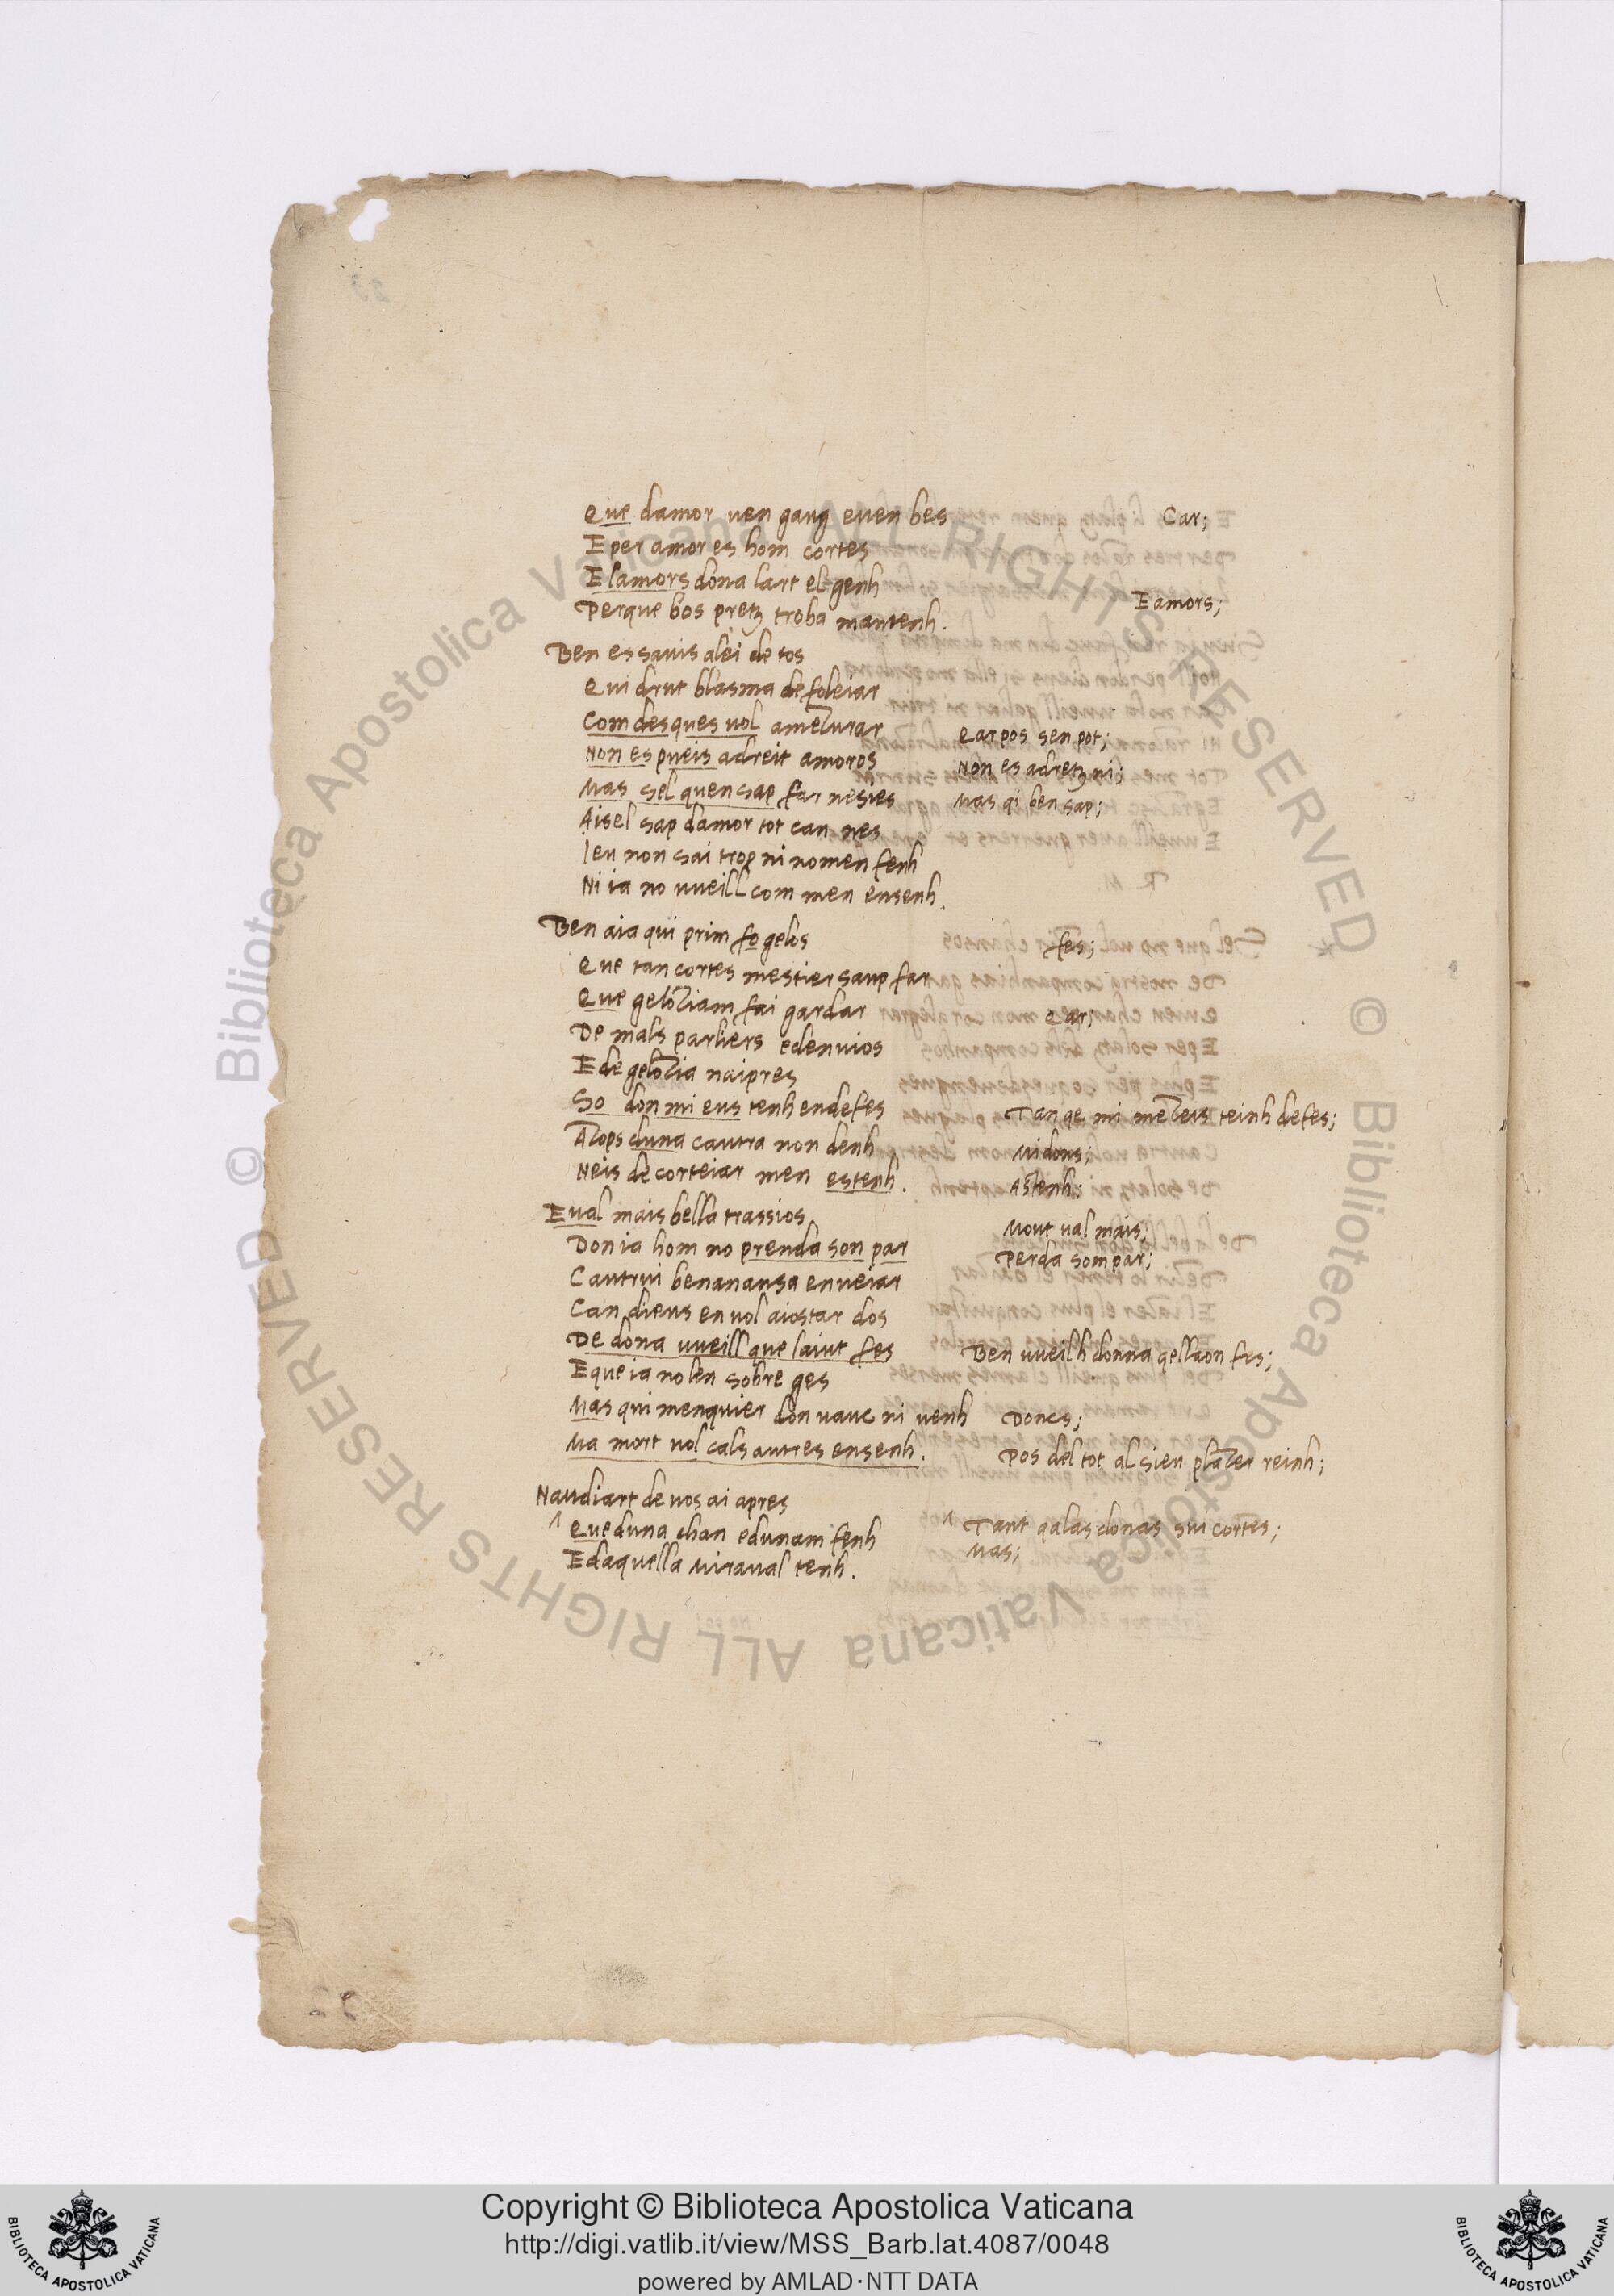 Que damor uen gaug euen bes Car;
E per amor es hom cortes
E lamors dona lart el genh
Per que bos pretz troba mantenh. E amors;
Ben es sauis alei de tos
Qui drut blasma de foleiar
Com desques uol amezurar Qar pos sen pot;
Non es pueis adreit amoros Non es adretz ni;
Mas sel quen sap far nesies Mas qi ben sap;
Aisel sap damor tot can nes
Ieu non sai trop ni nomen fenh
Ni ia no uueill com men ensenh.
Ben aia qui prim fo gelos fes;
Que tan cortes mestier saup far
Que geloziam fai gardar Qar;
De mals parliers edenuios
E de gelozia naipres
So don mi eus tenh endefes Tan qe mi mezeis teinh defes;
Azops duna cautra non denh Midons;
Neis de corteiar men estenh. Astenh;
E ual mais bella trassios Mout ual mais;
Don ia hom no prenda son par Perda som par;
Cautrui benanansa enueiar
Can dieus en uol aiostar dos
De dona uueill que laiut fes Ben uueilh donna qellaon fes;
E que ia nolen sobre ges
Mas qui menquier don uauc ni uenh Doncs;
Ma mort uol cals autres ensenh. Pos del tot al sieu plazer reinh;
Naudiart de uos ai apres
^ Que duna chan edunam fenh ^ Tant qalas donas sui cortes;
E daquella Miraual tenh. Mas;
© Biblioteca Apostolica Vaticana ALL RIGHTS RESERVED © Biblioteca Apostolica Vaticana ALL RIGHTS RESERVED
Copyright © Biblioteca Apostolica Vaticana
http://digi.vatlib.it/view/MSS_Barb.lat.4087/0048
powered by AMLAD·NTT DATA
BIBLIOTECA APOSTOLICA VATICANA
BIBLIOTECA APOSTOLICA VATICANA